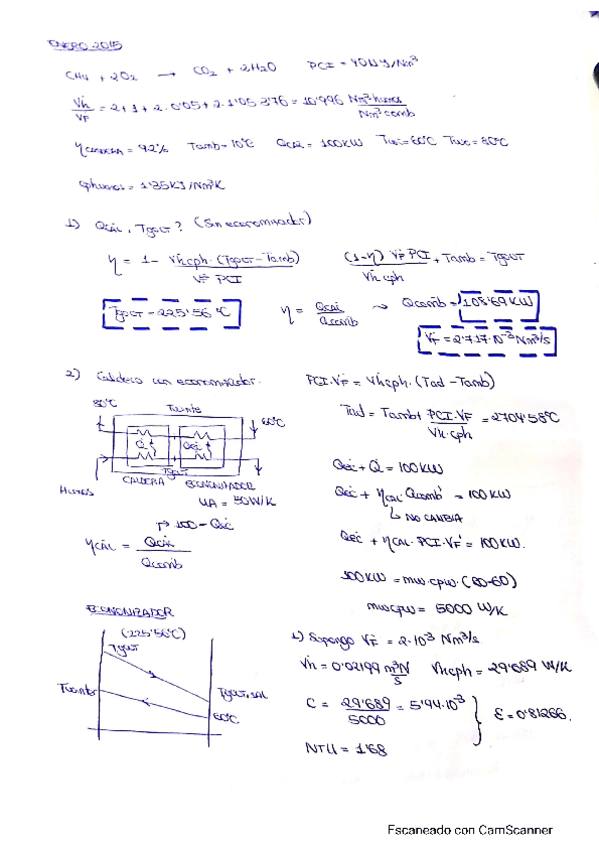 ENERO 2015
CH4 + 2O2 → CO2 + 2H2O PCI = 40MJ/Nm³
V̇h/V̇F = 2+1+2·0'05+2·1'05·3'76 = 10'996 Nm³humos/Nm³comb
ηCALDERA = 92% Tamb = 10°C Q̇CAL = 100KW Twi = 60°C Two = 80°C
Cphumos = 1'35KJ/Nm³K
1) Q̇CAL, TgOUT? (Sin economizador)
η = 1 - V̇h·cph·(TgOUT - Tamb)/V̇F PCI
(1-η) V̇F PCI/V̇h cph + Tamb = TgOUT
TgOUT = 225'56 °C
η = Q̇CAL/Q̇comb → Q̇comb = 108'69 KW
V̇F = 2'717·10⁻³ Nm³/s
2) Caldera con economizador.
80°C
60°C
Q̇
Q̇ec
TgOUT
Humos
CALDERA
ECONOMIZADOR
UA = 50W/K
→ 100 - Q̇ec
ηCAL = Q̇CAL/Q̇comb
PCI·V̇F = V̇h·cph·(Tad - Tamb)
Tad = Tamb + PCI·V̇F/V̇h·cph = 2704'58°C
Q̇ec + Q̇ = 100KW
Q̇ec + ηCAL·Q̇comb' = 100KW
↳ NO CAMBIA
Q̇ec + ηCAL·PCI·V̇F' = 100KW.
100KW = mw·cpw·(80-60)
mwcpw = 5000 W/K
ECONOMIZADOR
(225'56°C)
TgOUT
TgOUT,sal
60°C
1) Supongo V̇F = 2·10⁻³ Nm³/s
V̇h = 0'02199 m³N/s V̇hcph = 29'689 W/K
C = 29'689/5000 = 5'94·10⁻³
NTU = 1'68
ε = 0'81266.
Escaneado con CamScanner